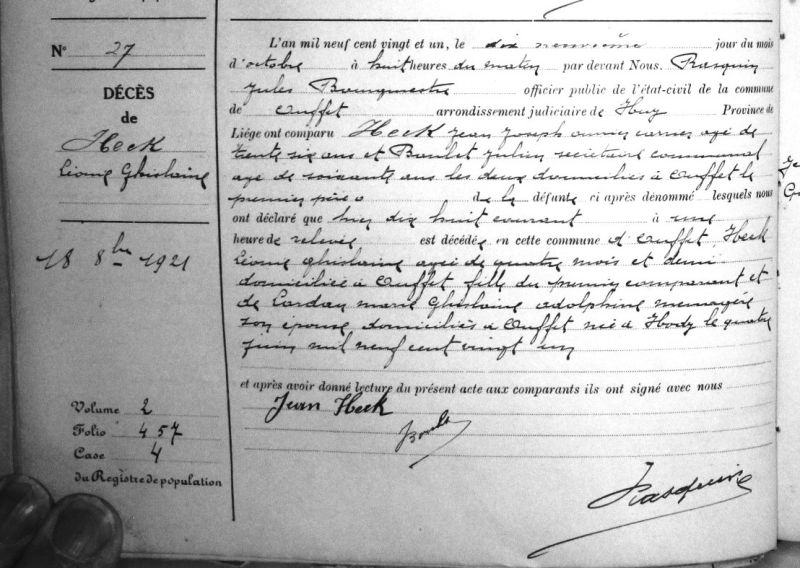 N° 27
DÉCÈS
de
Heck
Léonie Ghislaine
18 8bre 1921
Volume 2
Folio 457
Case 4
du Registre de population
L'an mil neuf cent vingt et un, le dix neuvième jour du mois
d'octobre à huit heures du matin par devant Nous. Rasquin
Jules Bourgmestre officier public de l'état-civil de la commune
de Ouffet arrondissement judiciaire de Huy Province de
Liége ont comparu Heck Jean Joseph ouvrier carrier agé de
trente six ans et Boulet Julien secrétaire communal
agé de soixante ans les deux domiciliés à Ouffet le
premier père de la défunte ci après dénommé lesquels nous
ont déclaré que hier dix huit courant à une
heure de relevée est décédée en cette commune d'Ouffet Heck
Léonie ghislaine agée de quatre mois et demi
domiciliée à Ouffet fille du premier comparant et
de Lardau marie Ghislaine adolphine menagère
son épouse domiciliés à Ouffet née à Hody le quatre
juin mil neuf cent vingt un
et après avoir donné lecture du présent acte aux comparants ils ont signé avec nous
Jean Heck
Boulet
Rasquin